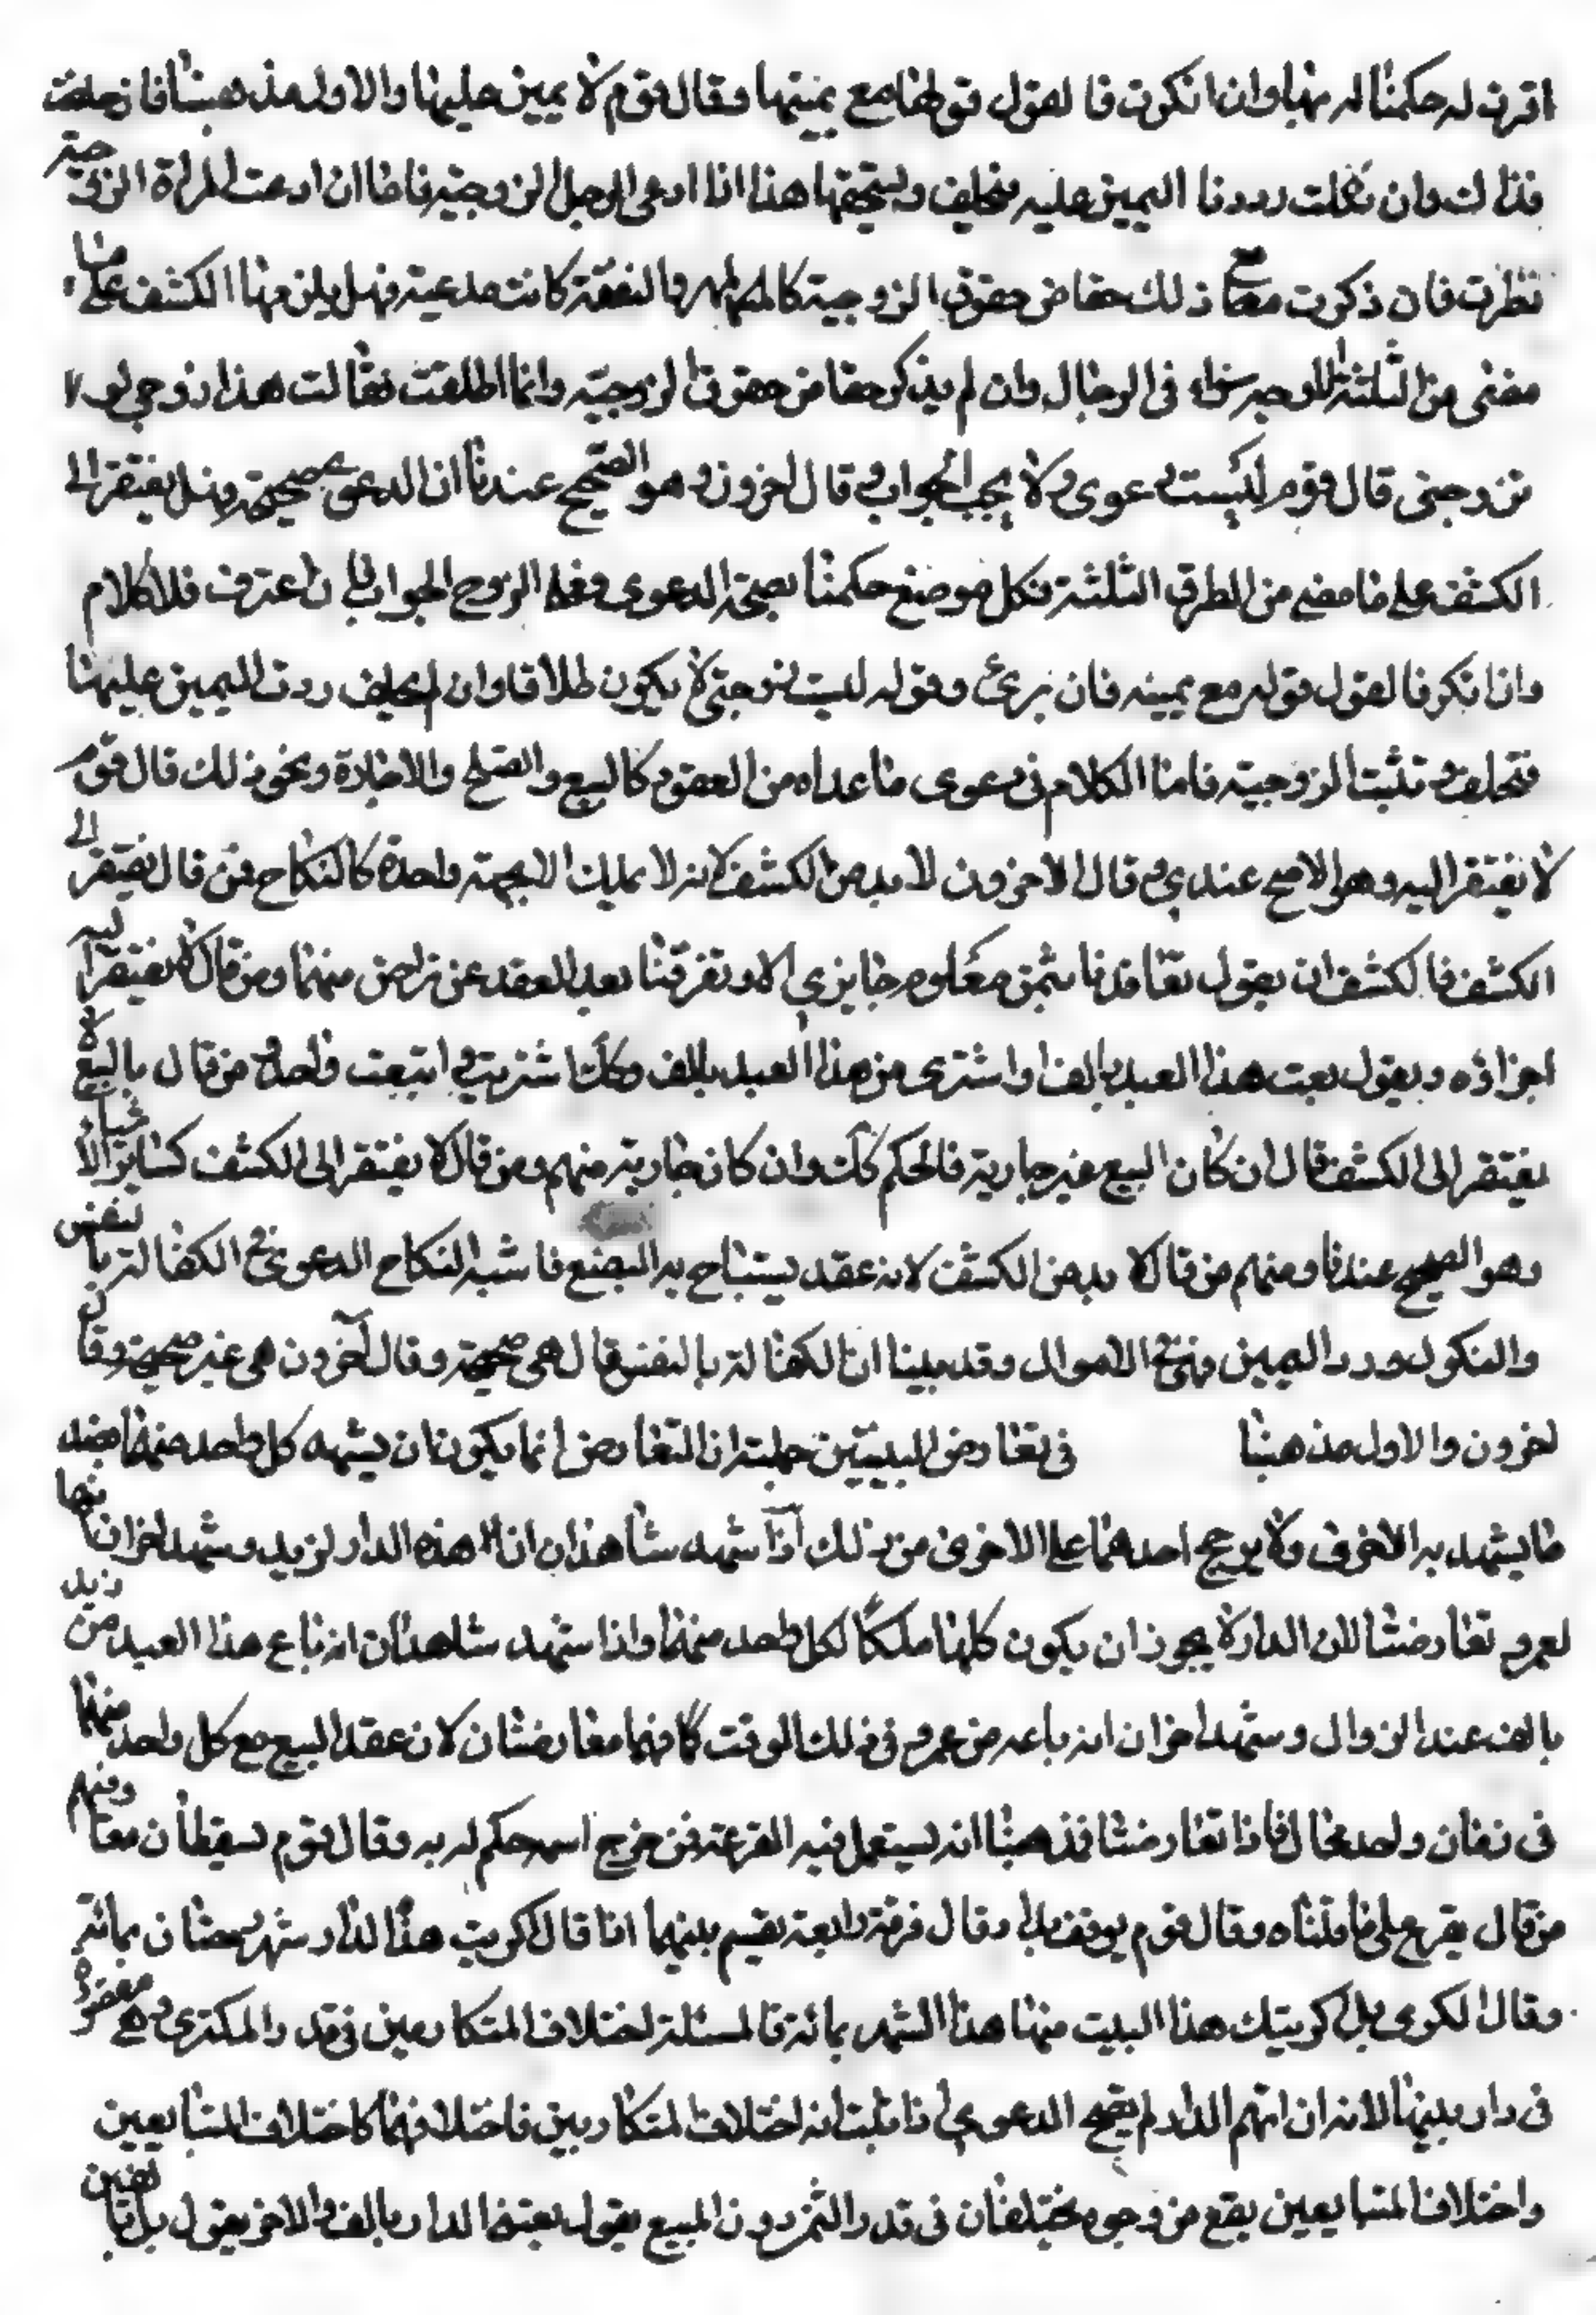 اقرت له حكمنا له بها وان انكرت فالقول قولها مع يمينها وقال قوم لا يمين عليها والاول مذهبنا فان حلفت
فذاك وان نكلت رددنا اليمين عليه فيحلف ويستحقها هذا اذا ادعى الرجل الزوجية فاما ان ادعت المراة الزوجية
نظرت فان ذكرت مع ذلك حقا من حقوق الزوجية كالمهر والنفقة كانت مدعية فهل يلزمها الكشف على ما
مضى من الثلثة الاوجه سواء في الرجال وان لم يذكر حقا من حقوق الزوجية وانما اطلقت فقالت هذا زوجي او
تزوجني قال قوم ليست دعوى ولا يجب الجواب وقال اخرون وهو الصحيح عندنا ان الدعوى صحيحة وهل يفتقر الى
الكشف على ما مضى من الطرق الثلثة فكل موضع حكمنا بصحة الدعوى فعلى الزوج الجواب فان اعترف فلا كلام
واذا انكر فالقول قوله مع يمينه فان برئ وقوله ليست زوجتي لا يكون طلاقا وان لم يحلف ردت اليمين عليها
فتحلف وتثبت الزوجية فاما الكلام في دعوى ما عداه من العقود كالبيع والصلح والاجارة ونحو ذلك قال قوم
لا يفتقر اليه وهو الاصح عندي وقال الاخرون لا بد من الكشف لانه لا يملك الا بجهة واحدة كالنكاح فمن قال يفتقر الى
الكشف فالكشف ان يقول تعاقدنا بثمن معلوم جايزي الامر وتفرقنا بعد العقد عن تراض منهما ومن قال لا يفتقر اليه
اجزاؤه ويقول بعت هذا العبد بالف او اشترى من هذا العبد بالف وكك اشتريت وابتعت واحد ومن قال بالبيع لا
يفتقر الى الكشف قال ان كان البيع غير جارية فالحكم كك وان كان جارية منهم ومن قال لا يفتقر الى الكشف كساير الاشياء
وهو الصحيح عندنا ومنهم من قال لا بد من الكشف لانه عقد يستباح به البضع فاشبه النكاح الدعوى في الكفالة بالنفس
والنكول ورد اليمين فهي في الاموال وقد بينا ان الكفالة بالنفس قال هي صحيحة وقال آخرون هي غير صحيحة وقال
اخرون والاول مذهبنا في تعارض البينتين جملته ان التعارض انما يكون ان يشهد كل واحد منهما بضد
ما يشهد به الاخرى ولا يرجح احدهما على الاخرى من ذلك اذا شهد شاهدان ان هذه الدار لزيد وشهد اخران انها
لعمرو تعارضتا لان الدار لا يجوز ان يكون كلها ملكا لكل واحد منهما واذا شهد شاهدان انه باع هذا العبد من زيد
بالف عند الزوال وشهد اخران انه باعه من عمرو في ذلك الوقت كانهما متعارضتان لان عقد البيع مع كل واحد منهما
في زمان واحد محال فاذا تعارضتا فمذهبنا انه يستعمل فيه القرعة فمن خرج اسمه حكم له به وقال قوم تسقطان معا ومنهم
من قال يقرع على ما قلناه وقال قوم يوقف ابدا وقال فرقة رابعة يقسم بينهما اذا قال اكريت هذا الدار شهر رمضان بمائة
وقال المكري بل اكريتك هذا البيت منها هذا الشهر بمائة فالمسئلة اختلاف المتكاريين في قدر المكترى وهي مفروضة
في دار بينها لانه ان ابهم الدار لم يصح الدعوى فاذا ثبت انه اختلاف المتكاريين فاختلافهما كاختلاف المتبايعين
واختلاف المتبايعين يقع من وجوه يختلفان في قدر الثمن دون المبيع يقول بعتني الدار بالف والاخر يقول بل بالفين